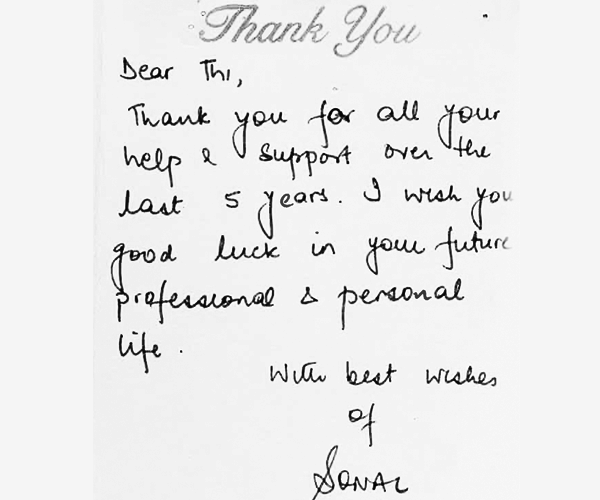 Thank You
Dear Thi,
Thank you for all your
help & support over the
last 5 years. I wish you
good luck in your future
professional & personal
life.
With best wishes
of
SONAL